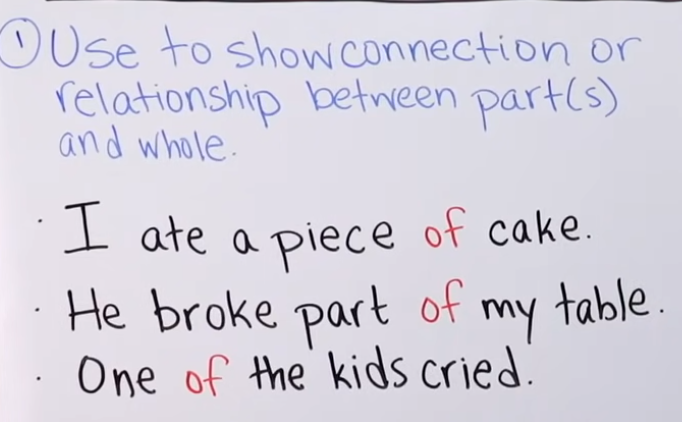 ① Use to show connection or
relationship between part(s)
and whole.
· I ate a piece of cake.
· He broke part of my table.
· One of the kids cried.